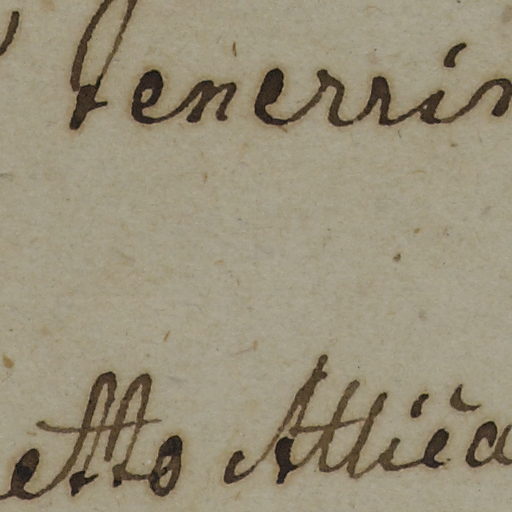 tenerrin
etto Attica